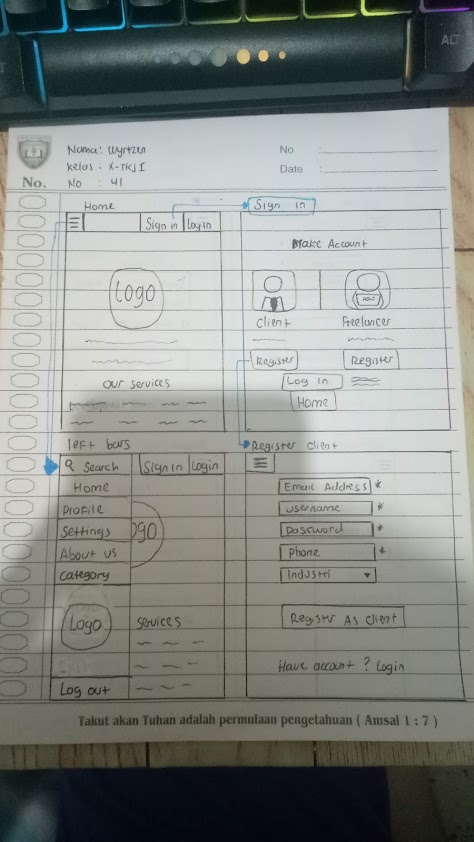 ALT
Nama: Wyrtzen
Kelas : X-TKJ I
No : 41
No. 
No :
Date :
Home
Sign in
Login
Logo
Our services
Sign in
Make Account
Client
Freelancer
Register
Register
Log in
Home
left bars
Search
Sign in
Login
Home
Profile
Settings
About us
Category
ogo
Logo
services
Log out
Register client
Email Address *
Username *
Password *
Phone *
Industri
Register As Client
Have account ? Login
Takut akan Tuhan adalah permulaan pengetahuan ( Amsal 1 : 7 )